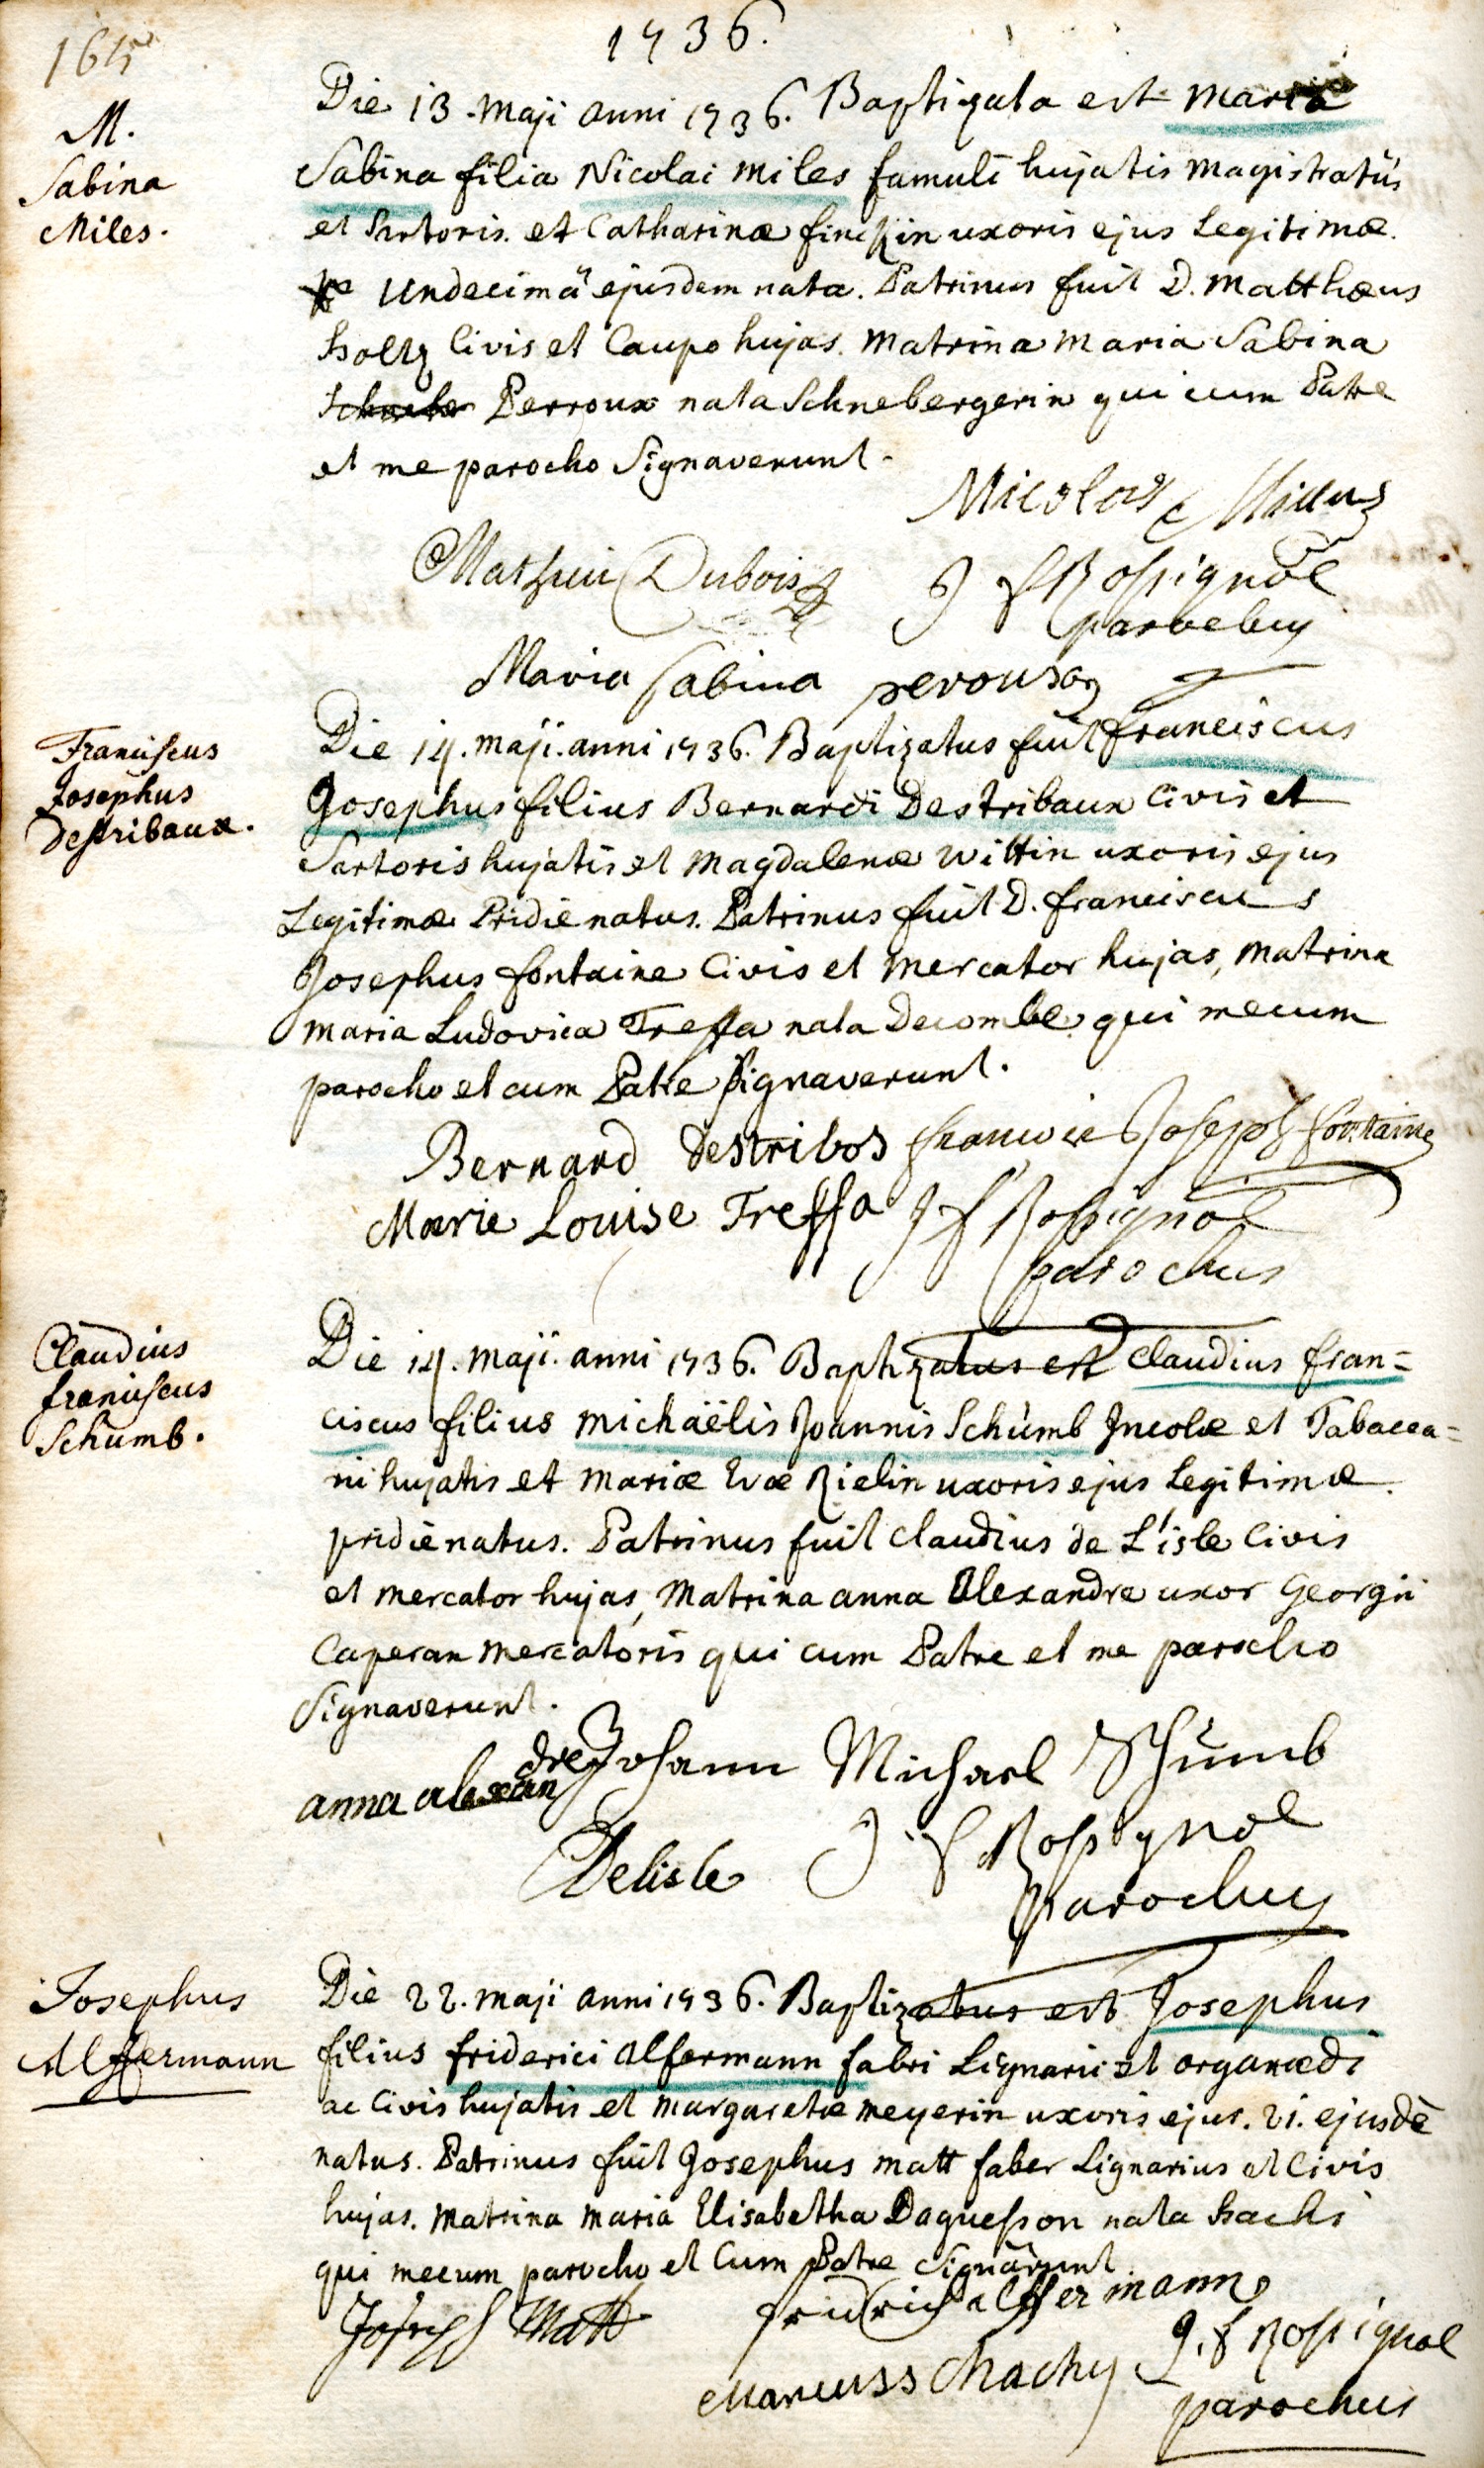 1736.
165
M.
Sabina
Miles.
Die 13. Maji anni 1736. Baptizata est Maria
Sabina filia Nicolai Miles famuli hujatis Magistratûs
et Sartoris. et Catharinæ finckin uxoris ejus Legitimæ.
Undecimâ ejusdem nata. Patrinus fuit D. Matthæus
Holtz Civis et Caupo hujas. Matrina Maria Sabina
Perroux nata Schnebergerin qui cum Patre
et me parocho Signaverunt.
Nicolas Millus
Dubois
J F Rossignol
parochus
Maria Sabina perousos
Franciscus
Josephus
Destribaux.
Die 14. Maji. anni 1736. Baptizatus fuit franciscus
Josephus filius Bernardi Destribaux Civis et
Sartoris hujatis et Magdalenæ Wittin uxoris ejus
Legitimæ Pridie natus. Patrinus fuit D. franciscus
Josephus fontaine Civis et Mercator hujas, Matrina
Maria Ludovica Treffa nata Decomble qui mecum
parocho et cum Patre Signaverunt.
Bernard destribos francois Joseph fontaine
Marie Louise Treffa J F Rossignol
parochus
Claudius
franciscus
Schümb.
Die 14. Maji. anni 1736. Baptizatus est Claudius fran=
ciscus filius Michaëlis Joannis Schümb Incolæ et Tabacca=
ni hujatis et Mariæ Evæ Rielin uxoris ejus Legitimæ.
pridie natus. Patrinus fuit Claudius de L'isle Civis
et Mercator hujas, Matrina anna Alexandre uxor Georgii
Caperan Mercatoris qui cum Patre et me parocho
Signaverunt.
anna alexan
dre Johann Michael Schümb
Delisle J. F Rossignol
parochus
Josephus
Alffermann
Die 22. Maji anni 1736. Baptizatus est Josephus
filius friderici Alfermann fabri Lignarii et organædi
ac Civis hujatis et Margaretæ Meyerin uxoris ejus. 21. ejusdē
natus. Patrinus fuit Josephus Matt faber Lignarius et Civis
hujas. Matrina Maria Elisabetha Daguesson nata Hachi
qui mecum parocho et Cum Patre Signârunt
Joseph Matt fridrich alffermann
Marcuss Machy J. F Rossignol
parochus